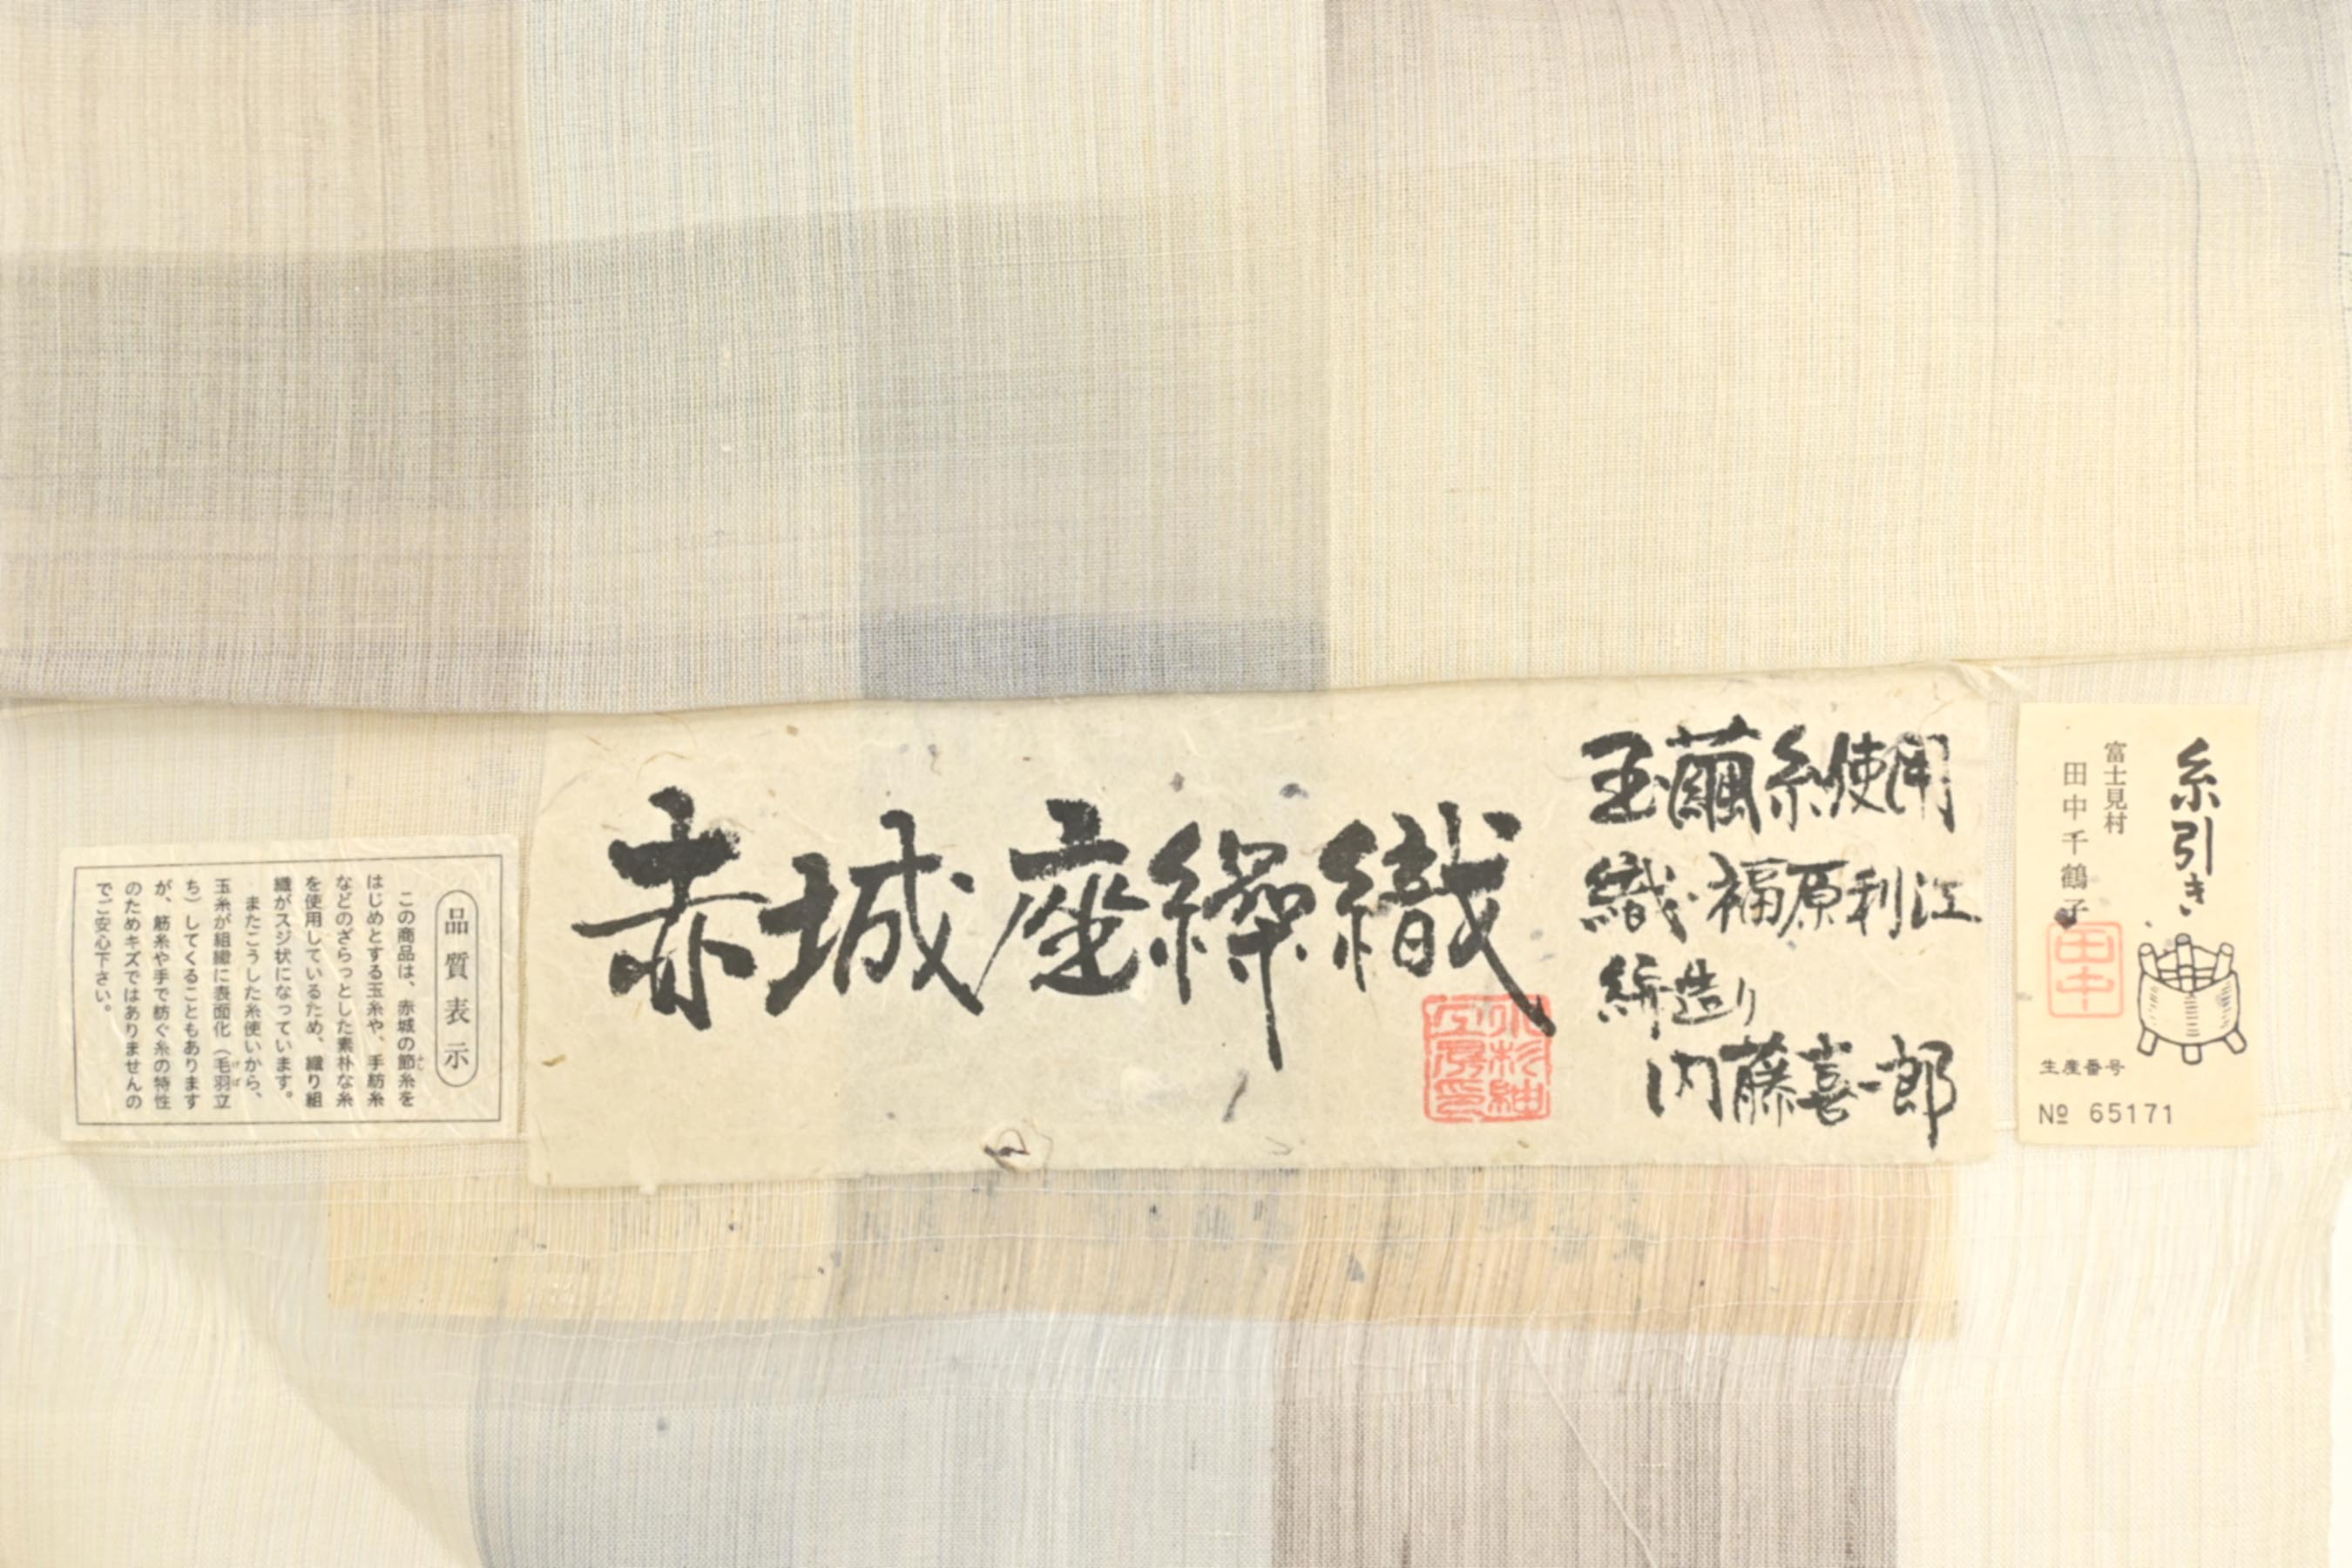 赤城座繰織
玉繭糸使用
織 福原利江
絣造り
内藤喜一郎
糸引き
富士見村
田中千鶴子
田中
生産番号
№ 65171
品質表示
この商品は、赤城の節糸を
はじめとする玉糸や、手紡糸
などのざらっとした素朴な糸
を使用しているため、織り組
織がスジ状になっています。
またこうした糸使いから、
玉糸が組織に表面化（毛羽立
ち）してくることもあります
が、節糸や手で紡ぐ糸の特性
のためキズではありませんの
でご安心下さい。